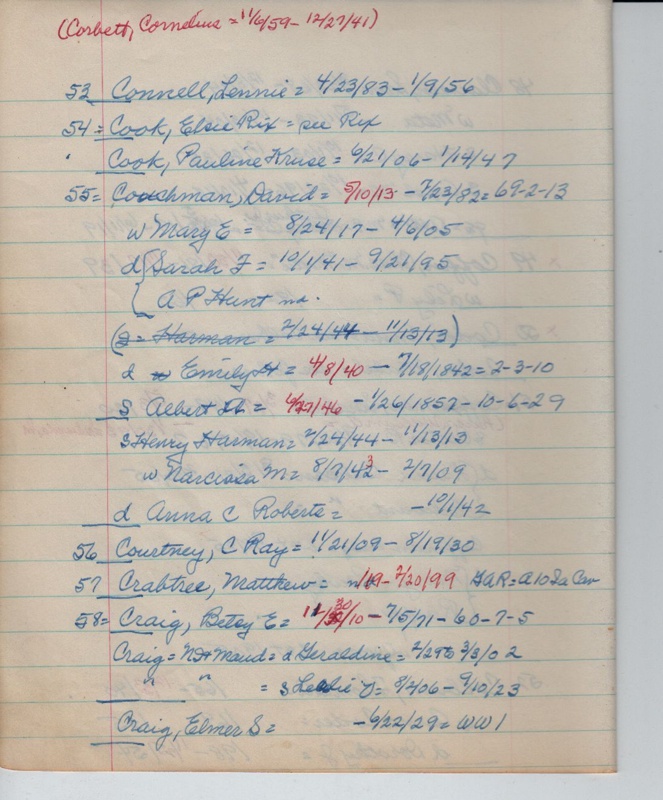 (Corbett, Cornelius = 11/6/59 - 12/27/41)
53 Connell, Lennie = 4/23/83 - 1/9/56
54 = Cook, Elsie Rix = see Rix
Cook, Pauline Kruse = 6/21/06 - 1/14/47
55 = Couchman, David = 5/10/13 - 7/23/82 = 69-2-13
w Mary E = 8/24/17 - 4/6/05
d { Sarah F = 10/1/41 - 9/21/95
A P Hunt nd.
(s = Harman = 2/24/44 - 11/13/13)
d Emily = 4/8/40 - 7/18/1842 = 2-3-10
S Albert = 6/27/46 - 1/26/1857 - 10-6-29
s Henry Harman = 2/24/44 - 11/13/13
w Narcissa M = 8/7/43 - 2/7/09
d Anna C Roberts = - 10/1/42
56 Courtney, C Ray = 11/21/09 - 8/19/30
57 Crabtree, Matthew = /19 - 2/20/99 GAR = A 10 Ia Cav
58 = Craig, Betsy E = 11/30/10 - 7/5/71 - 60-7-5
Craig = & Maud = d Geraldine = 3/3/02
" " = s Leslie = 8/2/06 - 9/10/23
Craig, Elmer S = - 6/22/29 = WW1